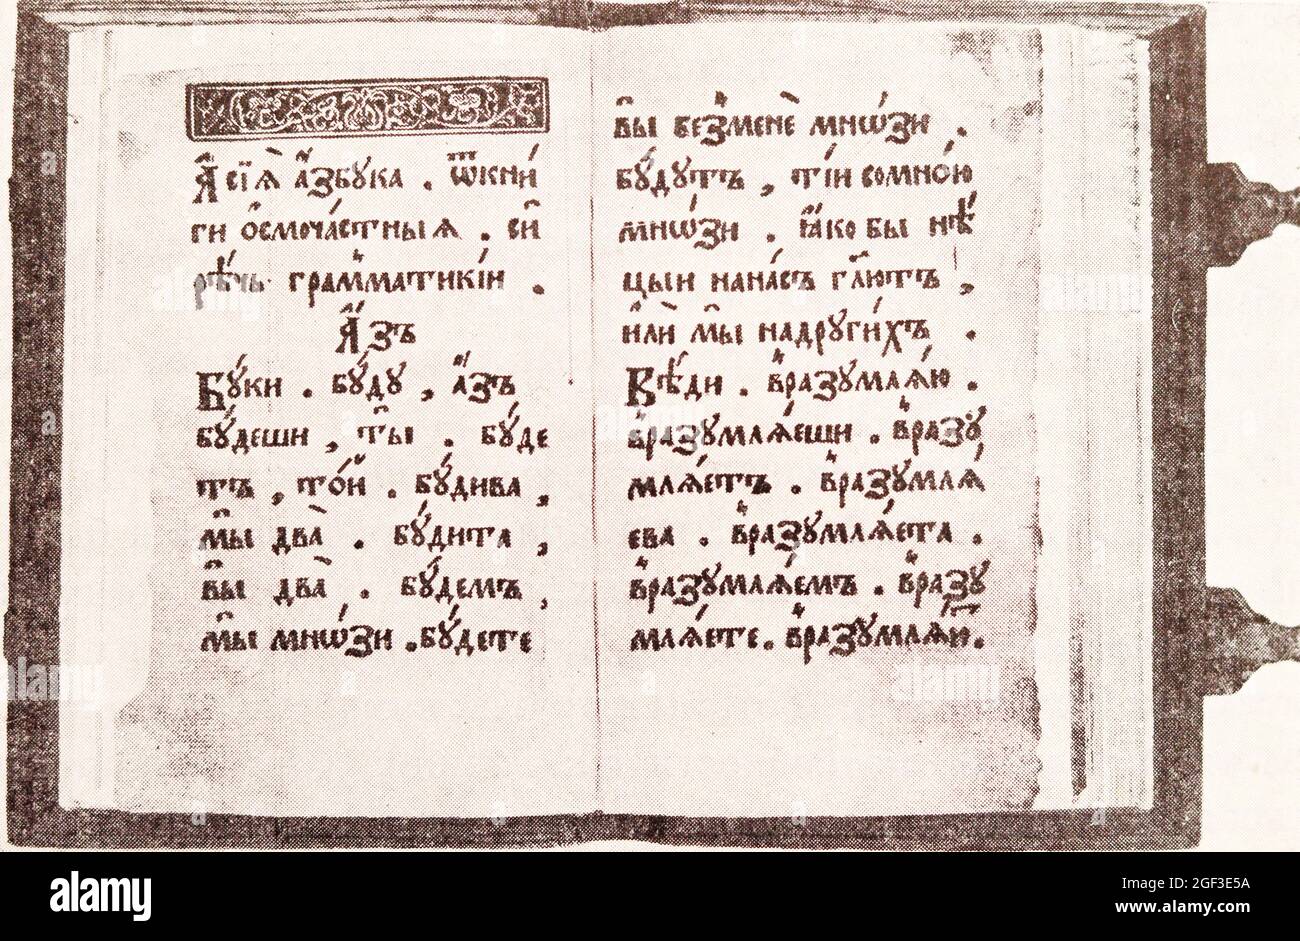 А҆ сїѧ̀ а҆́збука . ѿкни́
ги ѻ҆смоча́стныѧ . си́
рѣчь грамма́тикїи .
А҆́зъ
Бу́ки . бу́ду , а҆́зъ
бу́деши , ты̀ . бу́де
тъ , то́й . бу́дива ,
мы̀ два̀ . бу́дита ,
вы̀ два̀ . бу́демъ ,
мы̀ мнѡ́зи . бу́дете
вы̀ безменѐ мнѡ́зи .
бу́дутъ , ті́и сомно́ю
мнѡ́зи . ꙗ҆́ко бы нѣ́
цыи нана́съ гл҃ютъ ,
и҆лѝ мы̀ надруги́хъ .
Вѣ́ди . вразумлѧ́ю .
вразумлѧ́еши . вразу
млѧ́етъ . вразумлѧ́
ева . вразумлѧ́ета .
вразумлѧ́емъ . вразу
млѧ́ете . вразумлѧ́й .
alamy
Image ID: 2GF3E5A
www.alamy.com